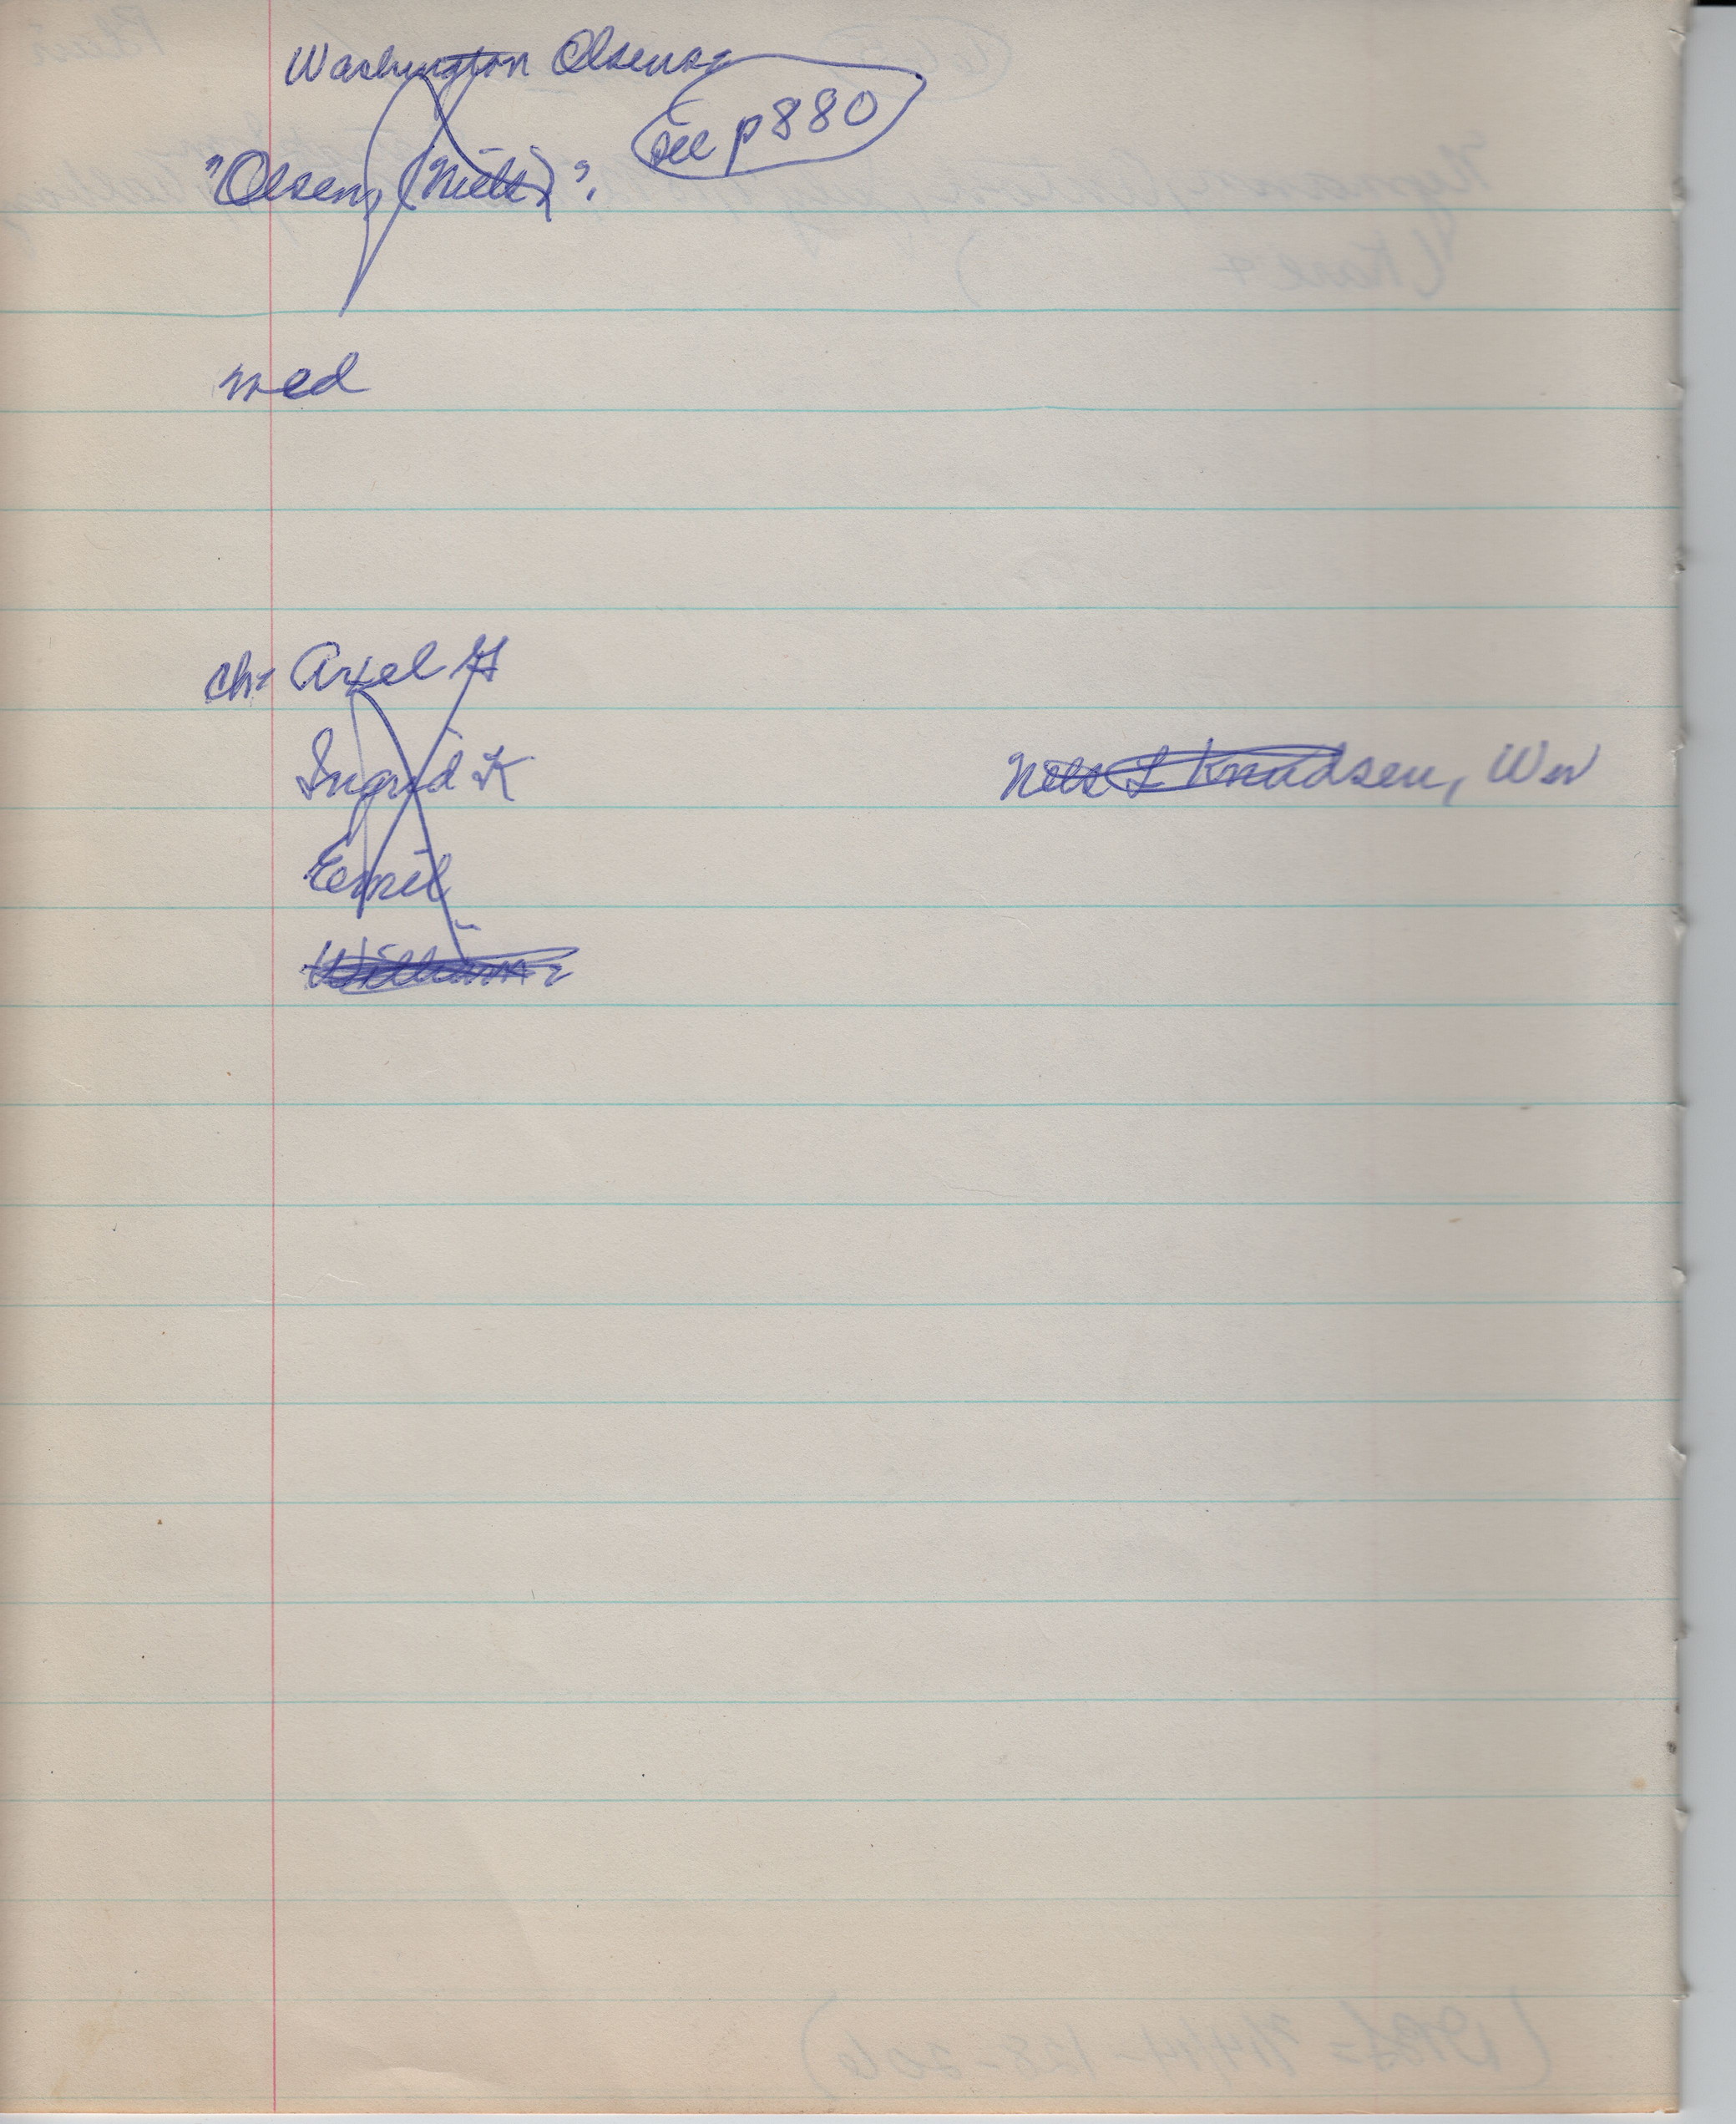 Washington Olsens
see p880
"Olsen, (Niels)".
med
ch: Axel H
Ingrid K
Nels L Knudsen, Ww
Emil
William